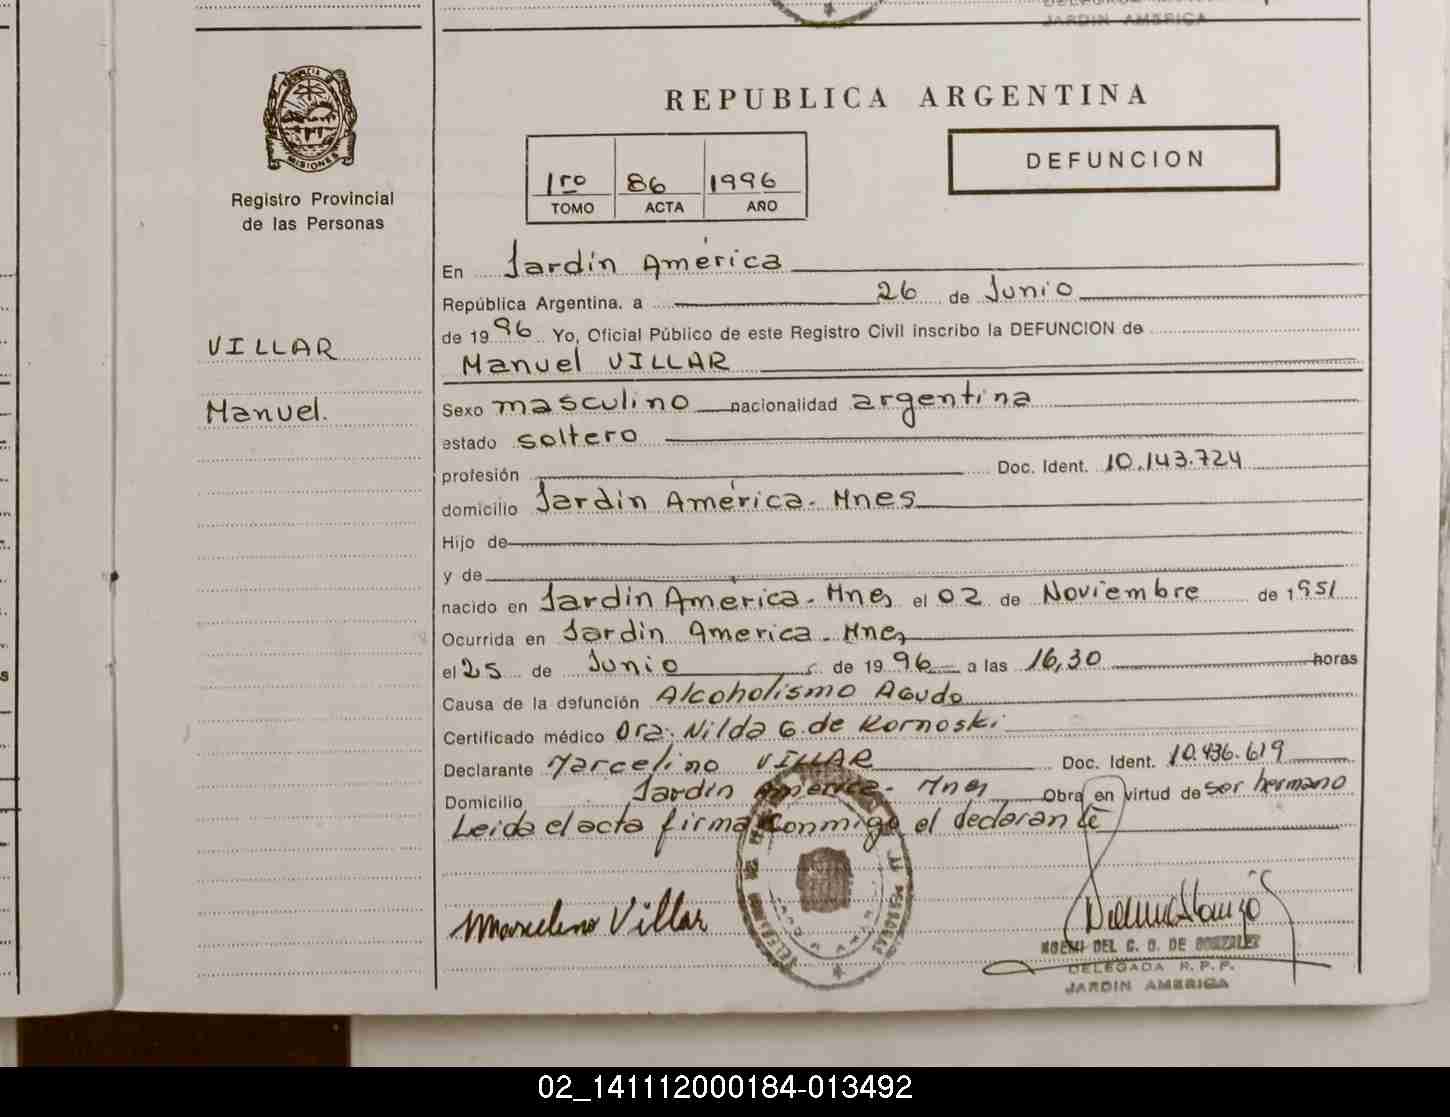 JARDIN AMERICA
PROVINCIA DE
MISIONES
Registro Provincial
de las Personas
REPUBLICA ARGENTINA
DEFUNCION
1ro 86 1996
TOMO ACTA AÑO
En Jardín América
República Argentina, a 26 de Junio
de 1996 Yo, Oficial Público de este Registro Civil inscribo la DEFUNCION de
VILLAR
Manuel VILLAR
Manuel.
Sexo masculino nacionalidad argentina
estado soltero
profesión Doc. Ident. 10.143.724
domicilio Jardín América. Mnes
Hijo de
y de
nacido en Jardín América. Mnes el 02 de Noviembre de 1951
Ocurrida en Jardín America. Mnes
el 25 de Junio de 1996 a las 16,30 horas
Causa de la defunción Alcoholismo Agudo
Certificado médico Dra. Nilda G. de Kornoski
Declarante Marcelino VILLAR Doc. Ident. 10.436.619
Domicilio Jardín América. Mnes Obra en virtud de ser hermano
Leida el acta firma conmigo el declarante
Marcelino Villar
NOEMI DEL C. D. DE GONZALEZ
DELEGADA R. P. P.
JARDIN AMERICA
02_141112000184-013492